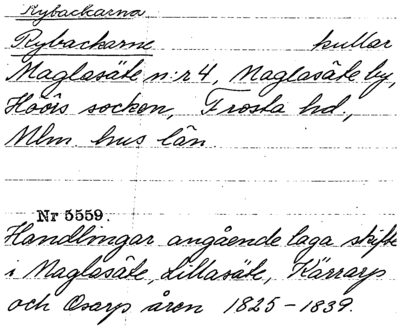 Rybackarna
Rybackarne kullar
Maglasäte n:r 4, Maglasäte by,
Höörs socken, Frosta hd.,
Mlm. hus län.
Nr 5559.
Handlingar angående laga skifte
i Maglasäte, Lillasäte, Kärrarp
och Osarp åren 1825-1839.